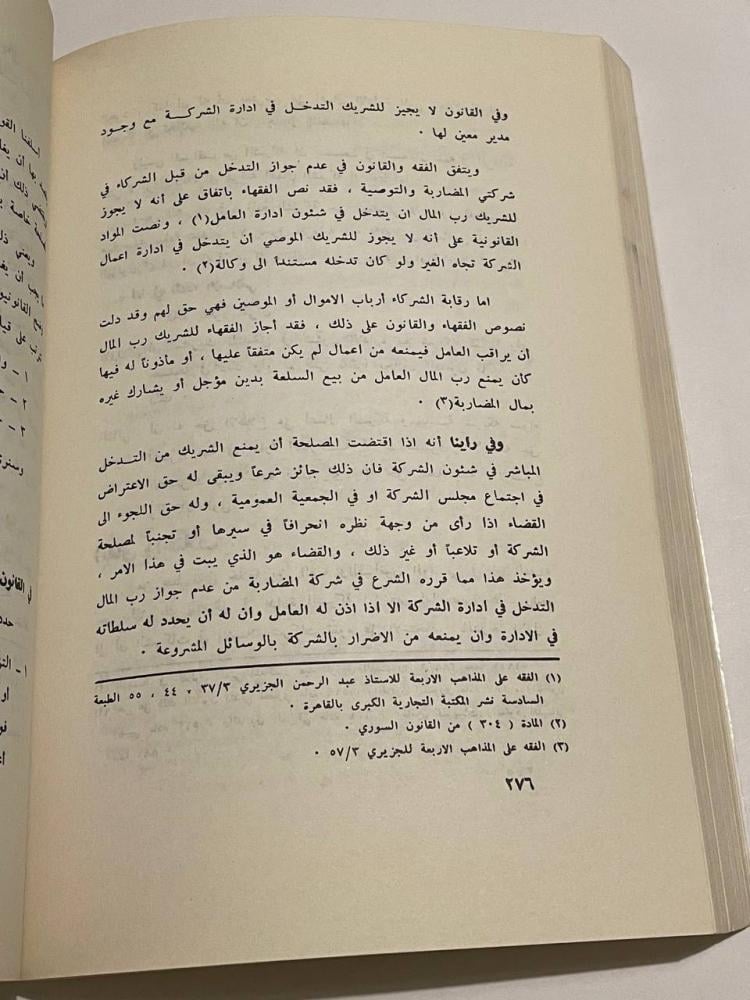 وفي القانون لا يجيز للشريك التدخل في ادارة الشركة مع وجود
مدير معين لها .
ويتفق الفقه والقانون في عدم جواز التدخل من قبل الشركاء في
شركتي المضاربة والتوصية ، فقد نص الفقهاء باتفاق على أنه لا يجوز
للشريك رب المال ان يتدخل في شئون ادارة العامل(١) ، ونصت المواد
القانونية على أنه لا يجوز للشريك الموصي أن يتدخل في ادارة اعمال
الشركة تجاه الغير ولو كان تدخله مستنداً الى وكالة(٢) .
اما رقابة الشركاء أرباب الاموال أو الموصين فهي حق لهم وقد دلت
نصوص الفقهاء والقانون على ذلك ، فقد أجاز الفقهاء للشريك رب المال
أن يراقب العامل فيمنعه من اعمال لم يكن متفقاً عليها ، أو مأذوناً له فيها
كأن يمنع رب المال العامل من بيع السلعة بدين مؤجل أو يشارك غيره
بمال المضاربة(٣) .
وفي راينا أنه اذا اقتضت المصلحة أن يمنع الشريك من التدخل
المباشر في شئون الشركة فان ذلك جائز شرعاً ويبقى له حق الاعتراض
في اجتماع مجلس الشركة او في الجمعية العمومية ، وله حق اللجوء الى
القضاء اذا رأى من وجهة نظره انحرافاً في سيرها أو تجنباً لمصلحة
الشركة أو تلاعباً أو غير ذلك ، والقضاء هو الذي يبت في هذا الامر ،
ويؤخذ هذا مما قرره الشرع في شركة المضاربة من عدم جواز رب المال
التدخل في ادارة الشركة الا اذا اذن له العامل وان له أن يحدد له سلطاته
في الادارة وان يمنعه من الاضرار بالشركة بالوسائل المشروعة .
(١) الفقه على المذاهب الاربعة للاستاذ عبد الرحمن الجزيري ٣٧/٣ ، ٤٤ ، ٥٥ الطبعة
السادسة نشر المكتبة التجارية الكبرى بالقاهرة .
(٢) المادة ( ٣٠٤ ) من القانون السوري .
(٣) الفقه على المذاهب الاربعة للجزيري ٥٧/٣ .
٢٧٦